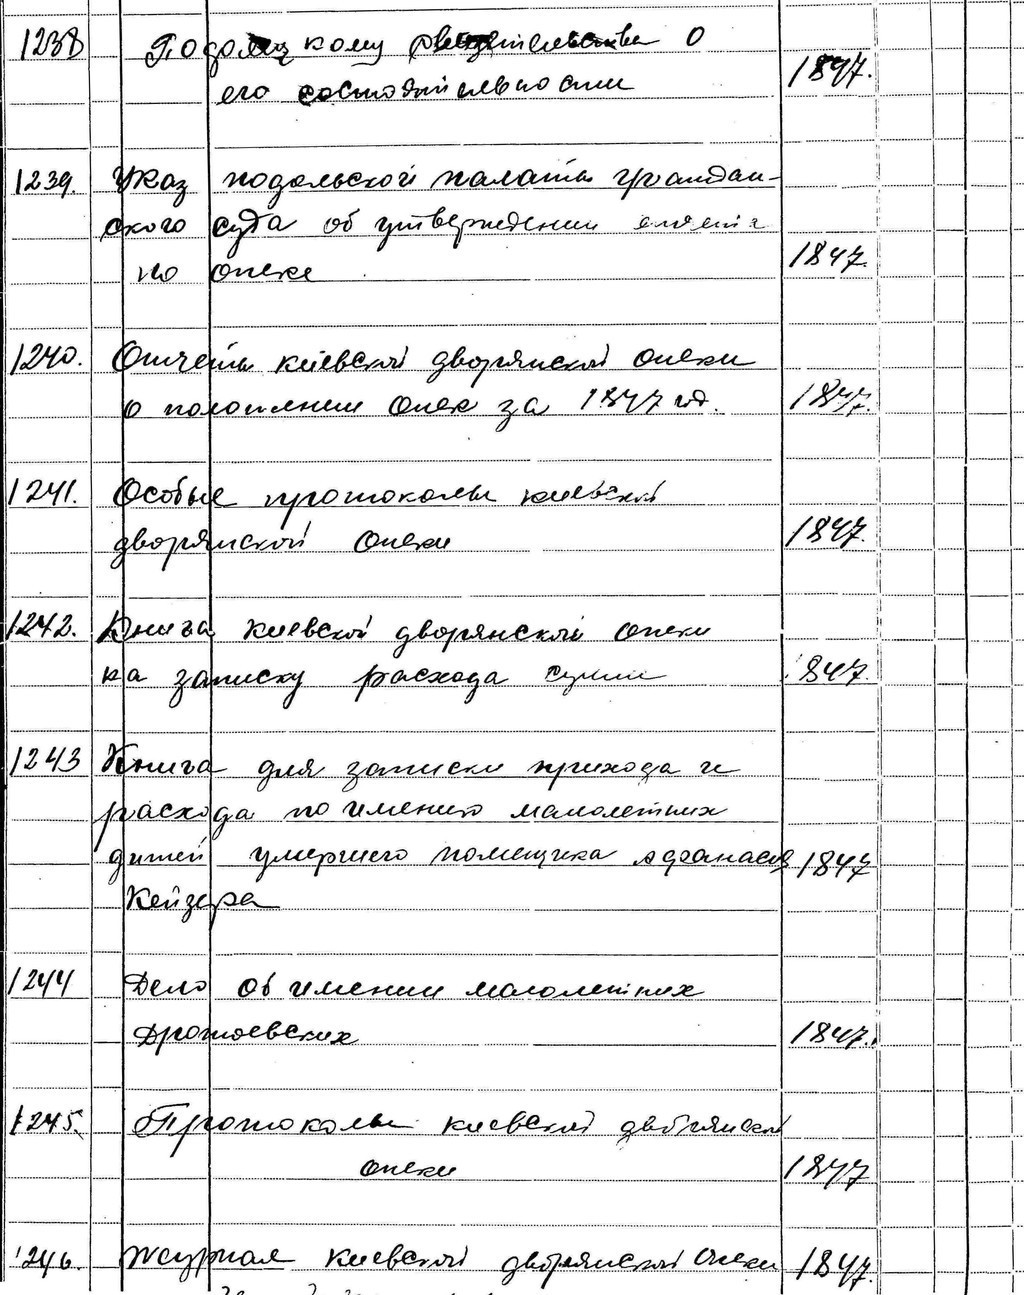 1238 Подольскому свидетельства о
его состоятельности 1847.
1239. Указ подольской палаты граждан-
ского суда об утверждении
по опеке 1847.
1240. Отчеты киевской дворянской опеки
о положении опек за 1847 год. 1847.
1241. Особые протоколы киевской
дворянской опеки 1847.
1242. Книга киевской дворянской опеки
на записку расхода сумм 1847.
1243 Книга для записки прихода и
расхода по имению малолетних
детей умершего помещика Афанасия 1847
Кейзера
1244 Дело об имении малолетних
1847.
1245. Протоколы киевской дворянской
опеки 1847
1246. Журнал киевской дворянской опеки 1847.